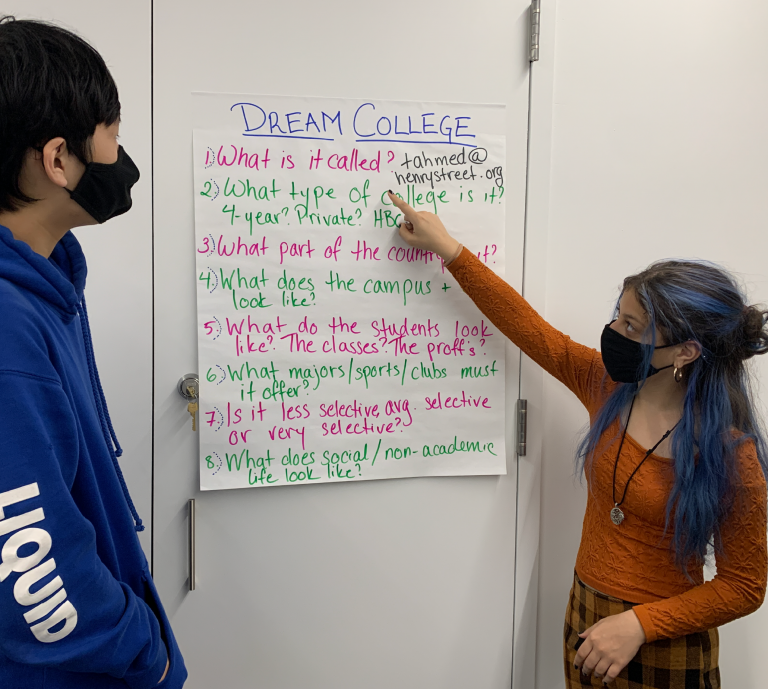 DREAM COLLEGE
1) What is it called? tahmed@
henrystreet.org
2) What type of college is it?
4-year? Private?
3) What part of the country it?
4) What does the campus +
look like?
5) What do the students look
like? The classes? The proff's?
6) What majors/sports/clubs must
it offer?
7) Is it less selective, avg. selective
or very selective?
8) What does social/non-academic
life look like?
LIQUID